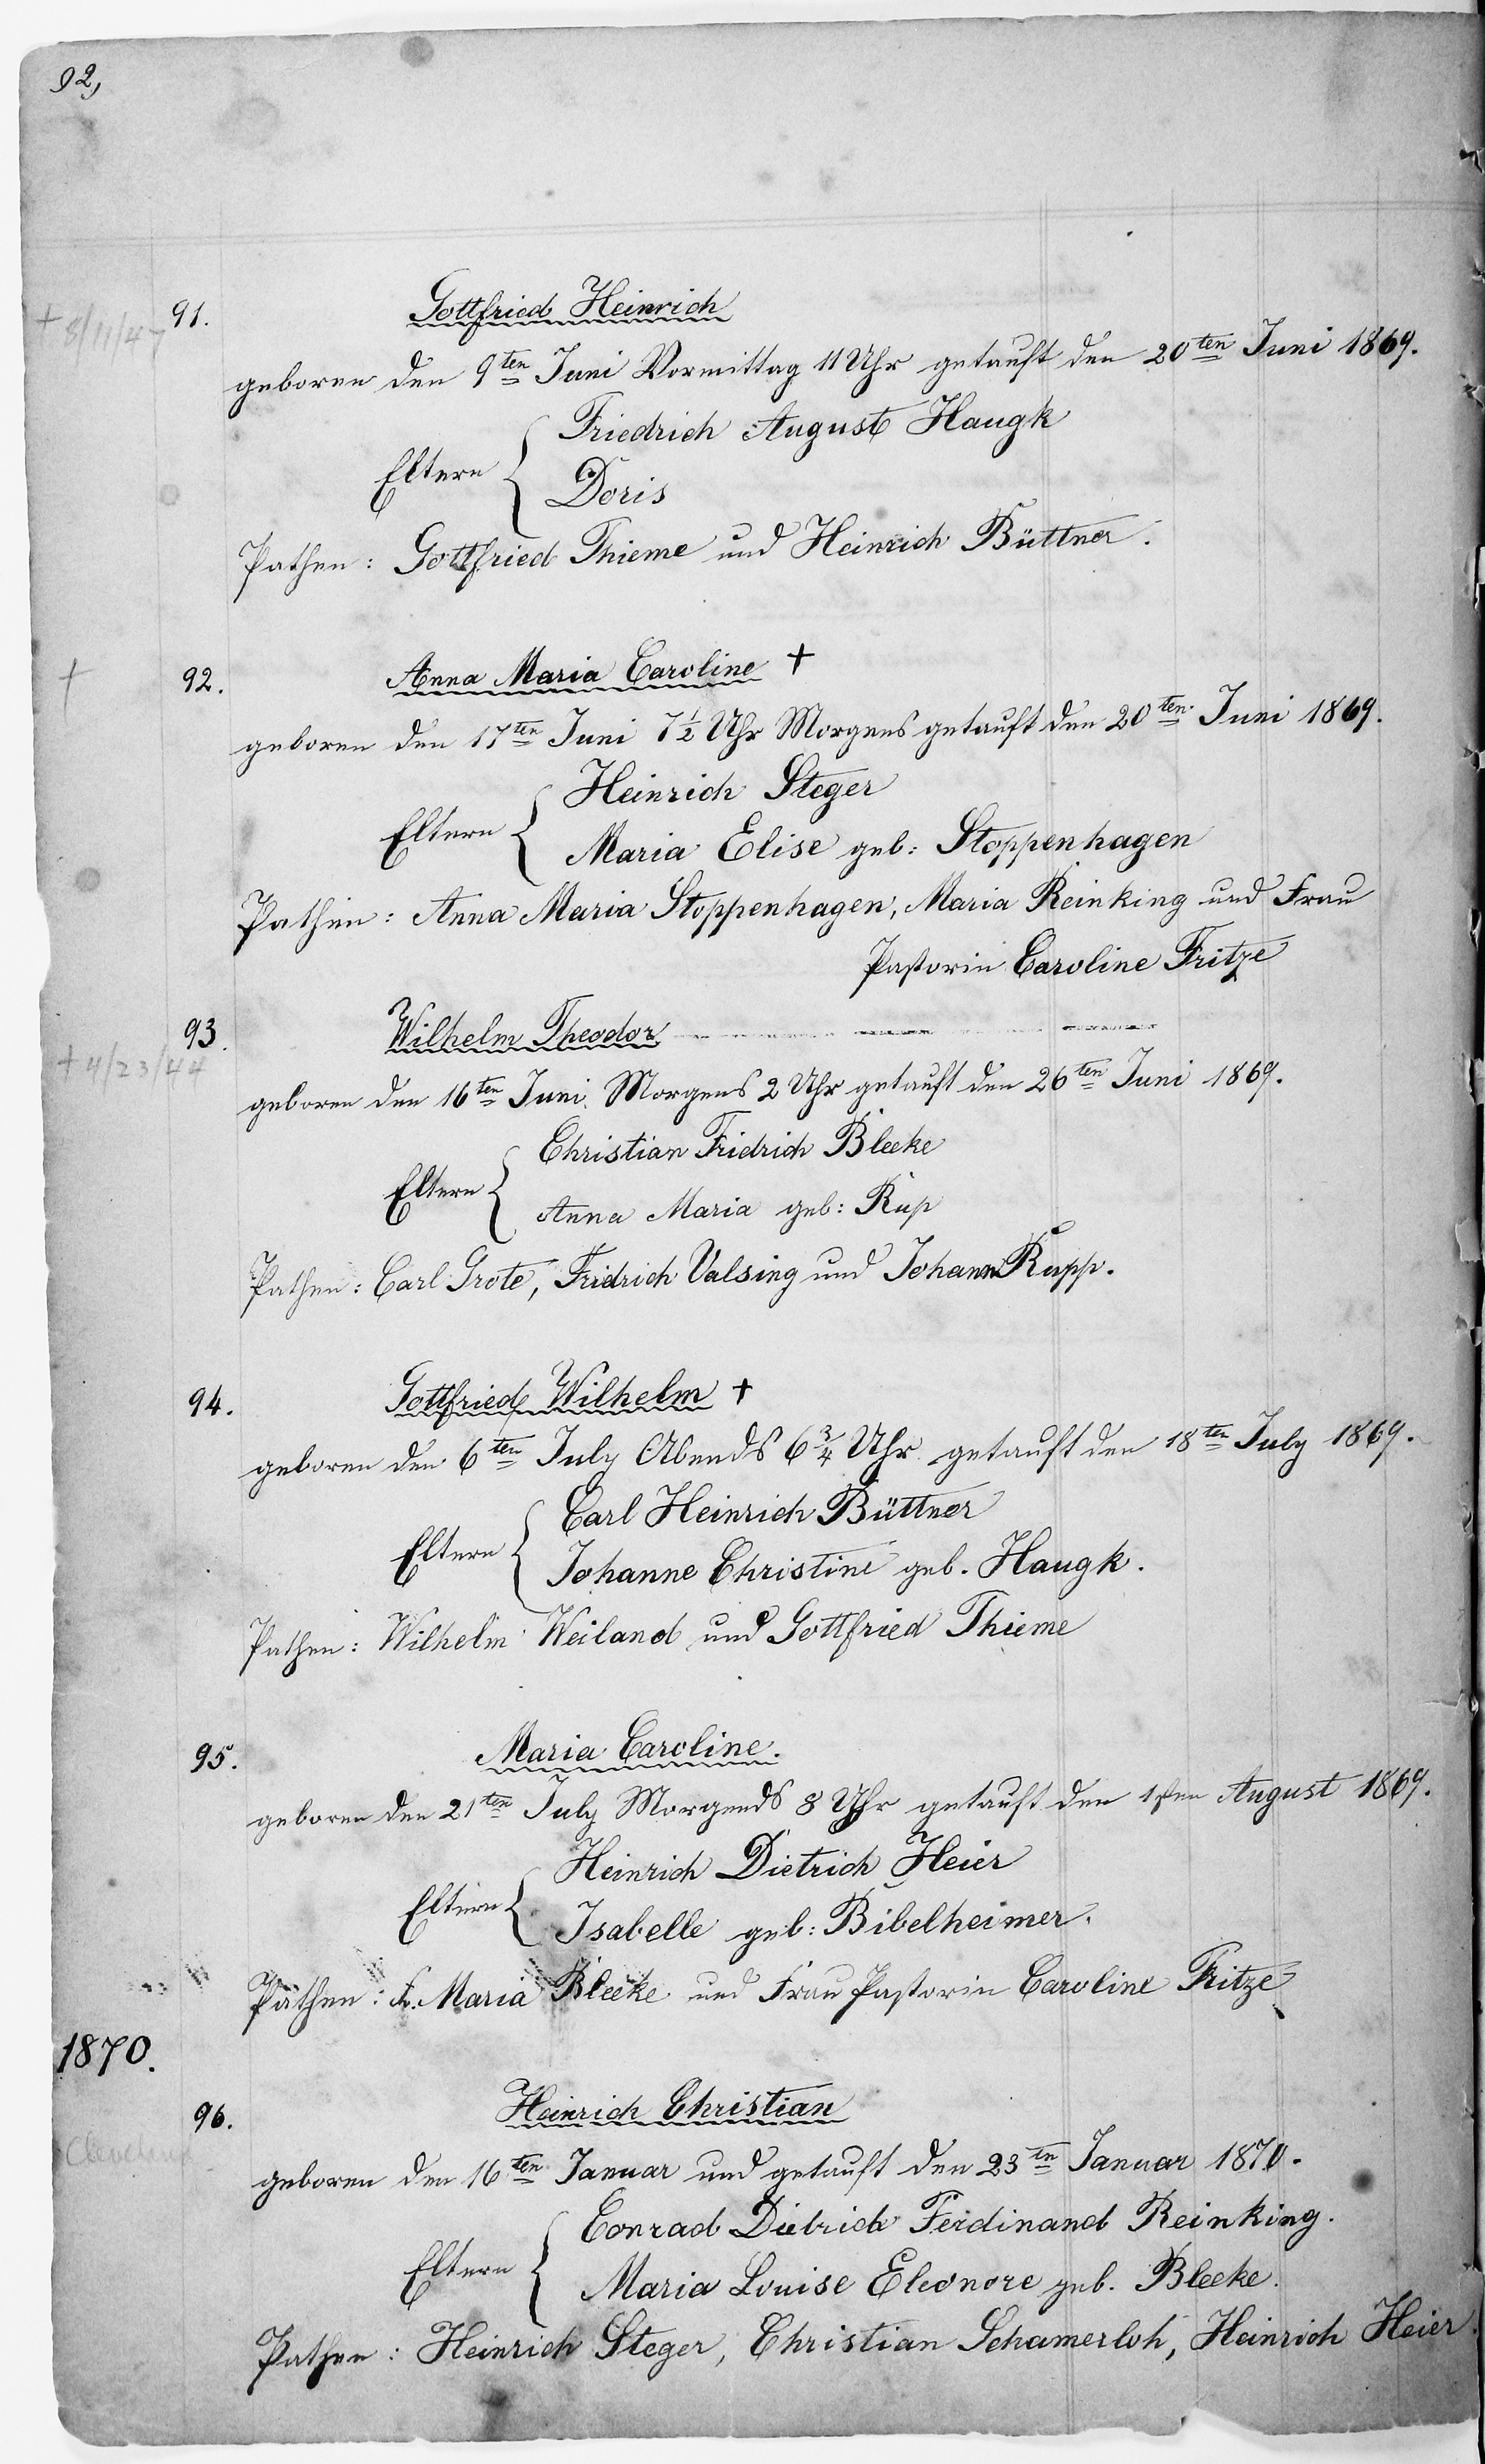 92,
+ 8/11/47
91.
Gottfried Heinrich
geboren den 9ten Juni Vormittag 11 Uhr getauft den 20ten Juni 1869.
Eltern { Friedrich August Haugk
Doris
Pathen: Gottfried Thieme und Heinrich Büttner.
+
92.
Anna Maria Caroline +
geboren den 17ten Juni 7½ Uhr Morgens getauft den 20ten Juni 1869.
Eltern { Heinrich Steger
Maria Elise geb: Stoppenhagen
Pathen: Anna Maria Stoppenhagen, Maria Reinking und Frau
Pastorin Caroline Fritze
93.
Wilhelm Theodor
+ 4/23/44
geboren den 16ten Juni Morgens 2 Uhr getauft den 26ten Juni 1869.
Eltern { Christian Fridrich Bleeke
Anna Maria geb: Rup
Pathen: Carl Grote, Fridrich Valsing und Johann Rupp.
94.
Gottfried Wilhelm +
geboren den 6ten July Abends 6¾ Uhr getauft den 18ten July 1869.
Eltern { Carl Heinrich Büttner
Johanne Christine geb. Haugk.
Pathen: Wilhelm Weiland und Gottfried Thieme
95.
Maria Caroline.
geboren den 21ten July Morgends 8 Uhr getauft den 1sten August 1869.
Eltern { Heinrich Dietrich Heier
Isabelle geb: Bibelheimer.
Pathen: Fr. Maria Bleeke und Frau Pastorin Caroline Fritze
1870.
96.
Heinrich Christian
geboren den 16ten Januar und getauft den 23ten Januar 1870.
Eltern { Conrad Dietrich Ferdinand Reinking.
Maria Louise Eleonore geb. Bleeke.
Pathen: Heinrich Steger, Christian Schamerloh, Heinrich Heier.